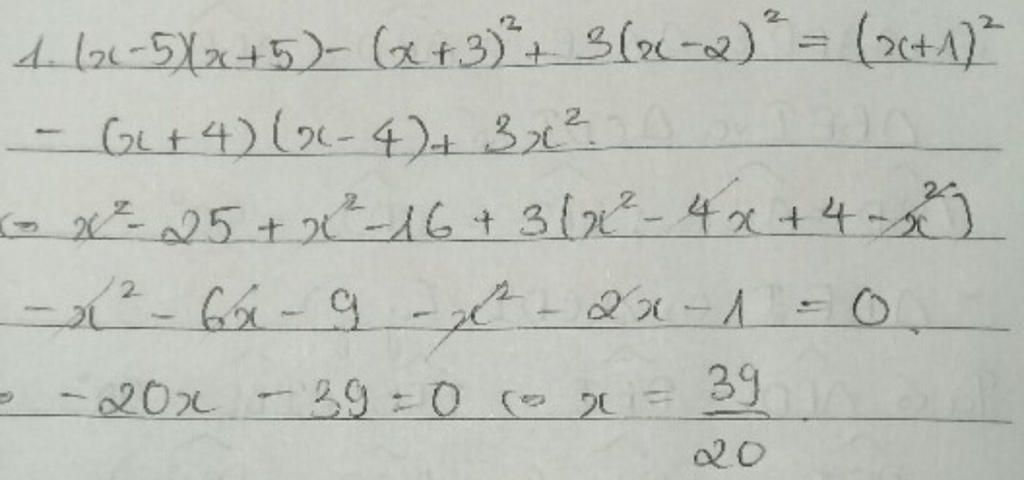 1. (x-5)(x+5) - (x+3)² + 3(x-2)² = (x+1)²
- (x+4)(x-4) + 3x².
⇔ x² - 25 + x² - 16 + 3(x² - 4x + 4 - x²)
- x² - 6x - 9 - x² - 2x - 1 = 0.
⇔ -20x - 39 = 0 ⇔ x = 39/20